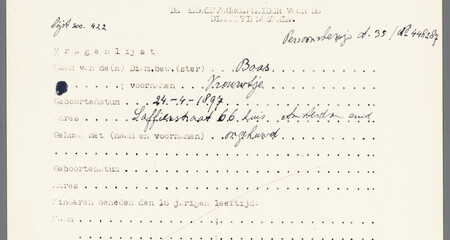 DE BEROEPSBEGELEIDER VOOR DE
DIAMSTINDUSTRIE.
Lijst no. 422
Persoonsbewijs A.35 / No 448267
Vragenlijst
Naam van de(n) Diam.bew.(ster) Boas
; voornamen Vrouwtje
Geboortedatum 24-4-1897
Adres Saffierstraat 66 huis Amsterdam zuid
Gehuwd met (naam en voornamen) ongehuwd
Geboortedatum
Adres
Kinderen beneden den 16 jarigen leeftijd:
Naam